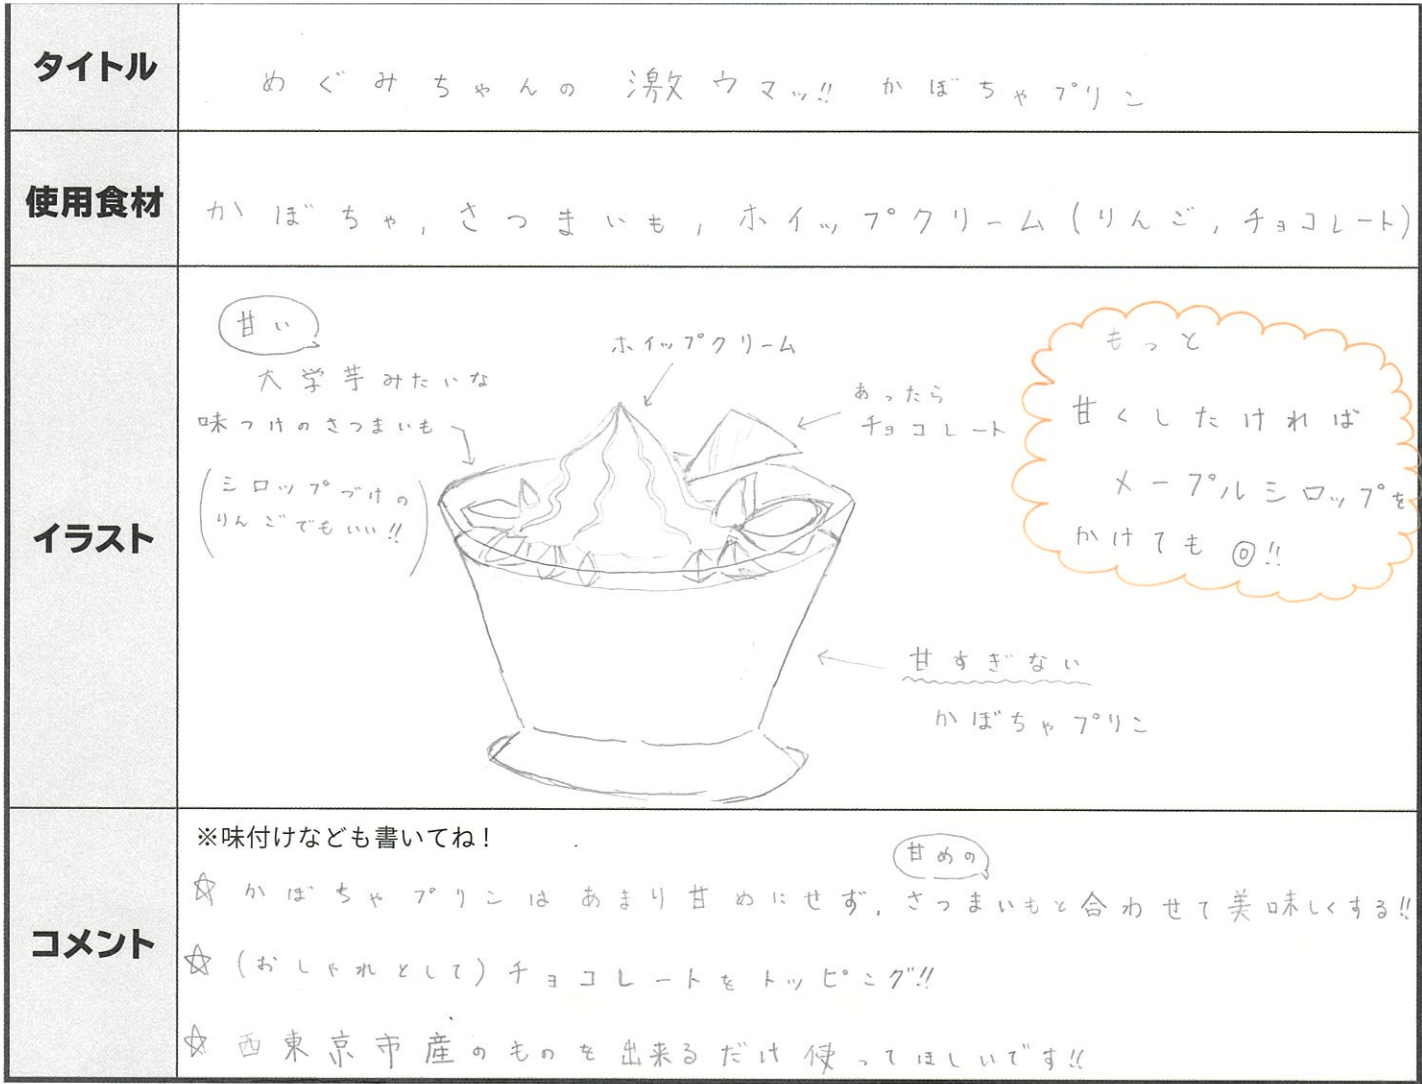 タイトル
めぐみちゃんの 激ウマッ!! かぼちゃプリン
使用食材
かぼちゃ, さつまいも, ホイップクリーム (りんご, チョコレート)
イラスト
甘い
大学芋みたいな
味つけのさつまいも
(シロップづけの
りんごでもいい!!)
ホイップクリーム
あったら
チョコレート
もっと
甘くしたければ
メープルシロップを
かけても◎!!
甘すぎない
かぼちゃプリン
コメント
※味付けなども書いてね!
甘めの
☆ かぼちゃプリンはあまり甘めにせず, さつまいもと合わせて美味しくする!!
☆ (おしゃれとして) チョコレートをトッピング!!
☆ 西東京市産のものを出来るだけ使ってほしいです!!